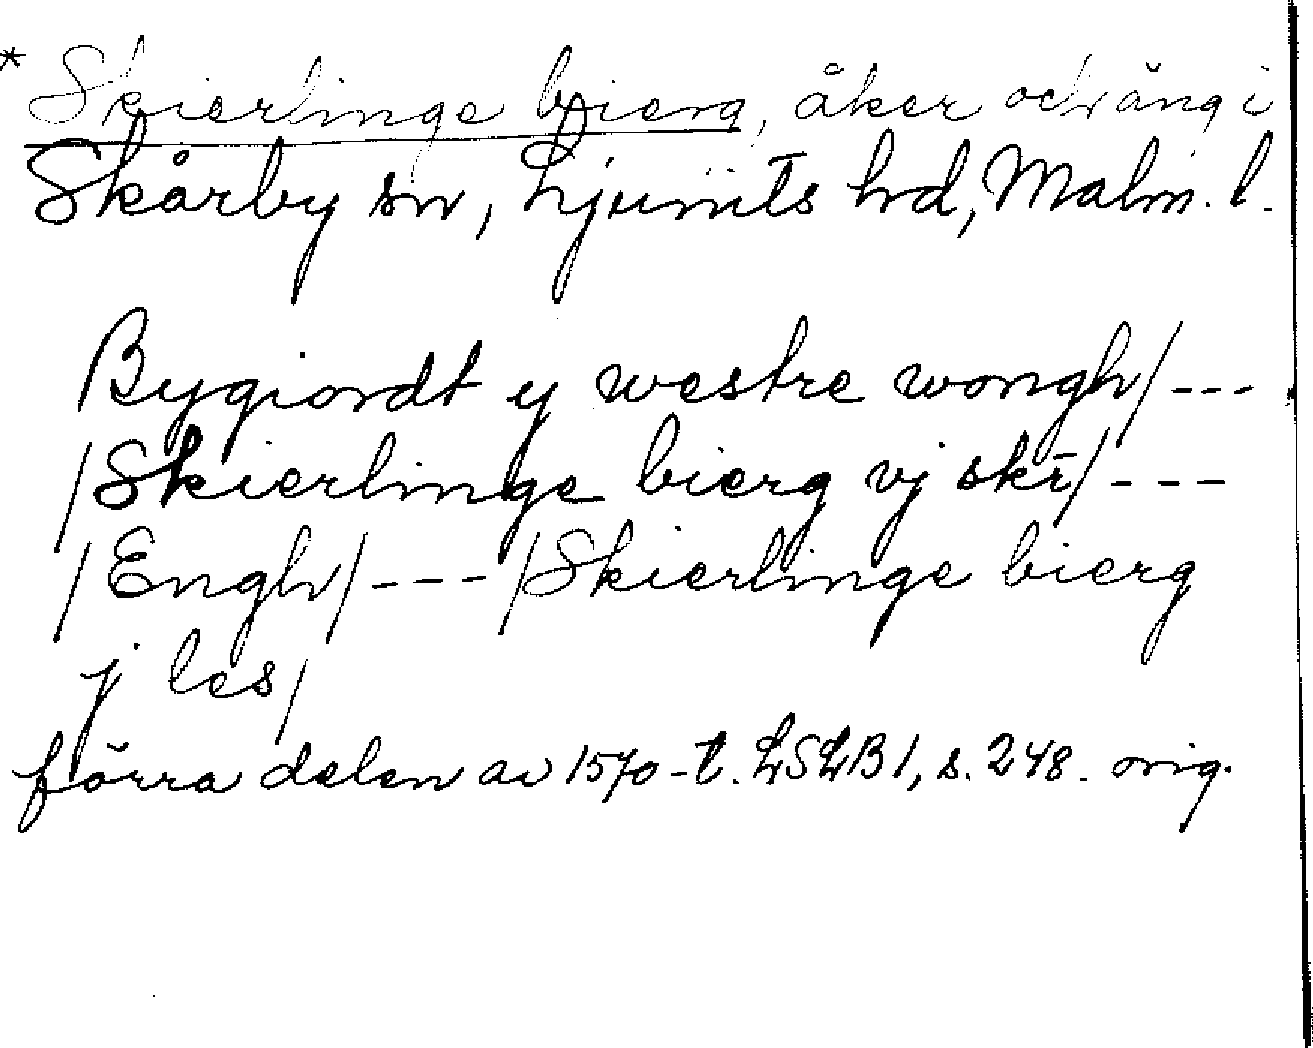 * Skierlinge bierg, åker och äng i
Skårby sn, Ljunits hd, Malm. l.
Bygiordt y westre wongh/---
/Skierlinge bierg vj skr/---
/Engh/---/Skierlinge bierg
j les/
förra delen av 1570-t. LSLB 1, s. 248. orig.